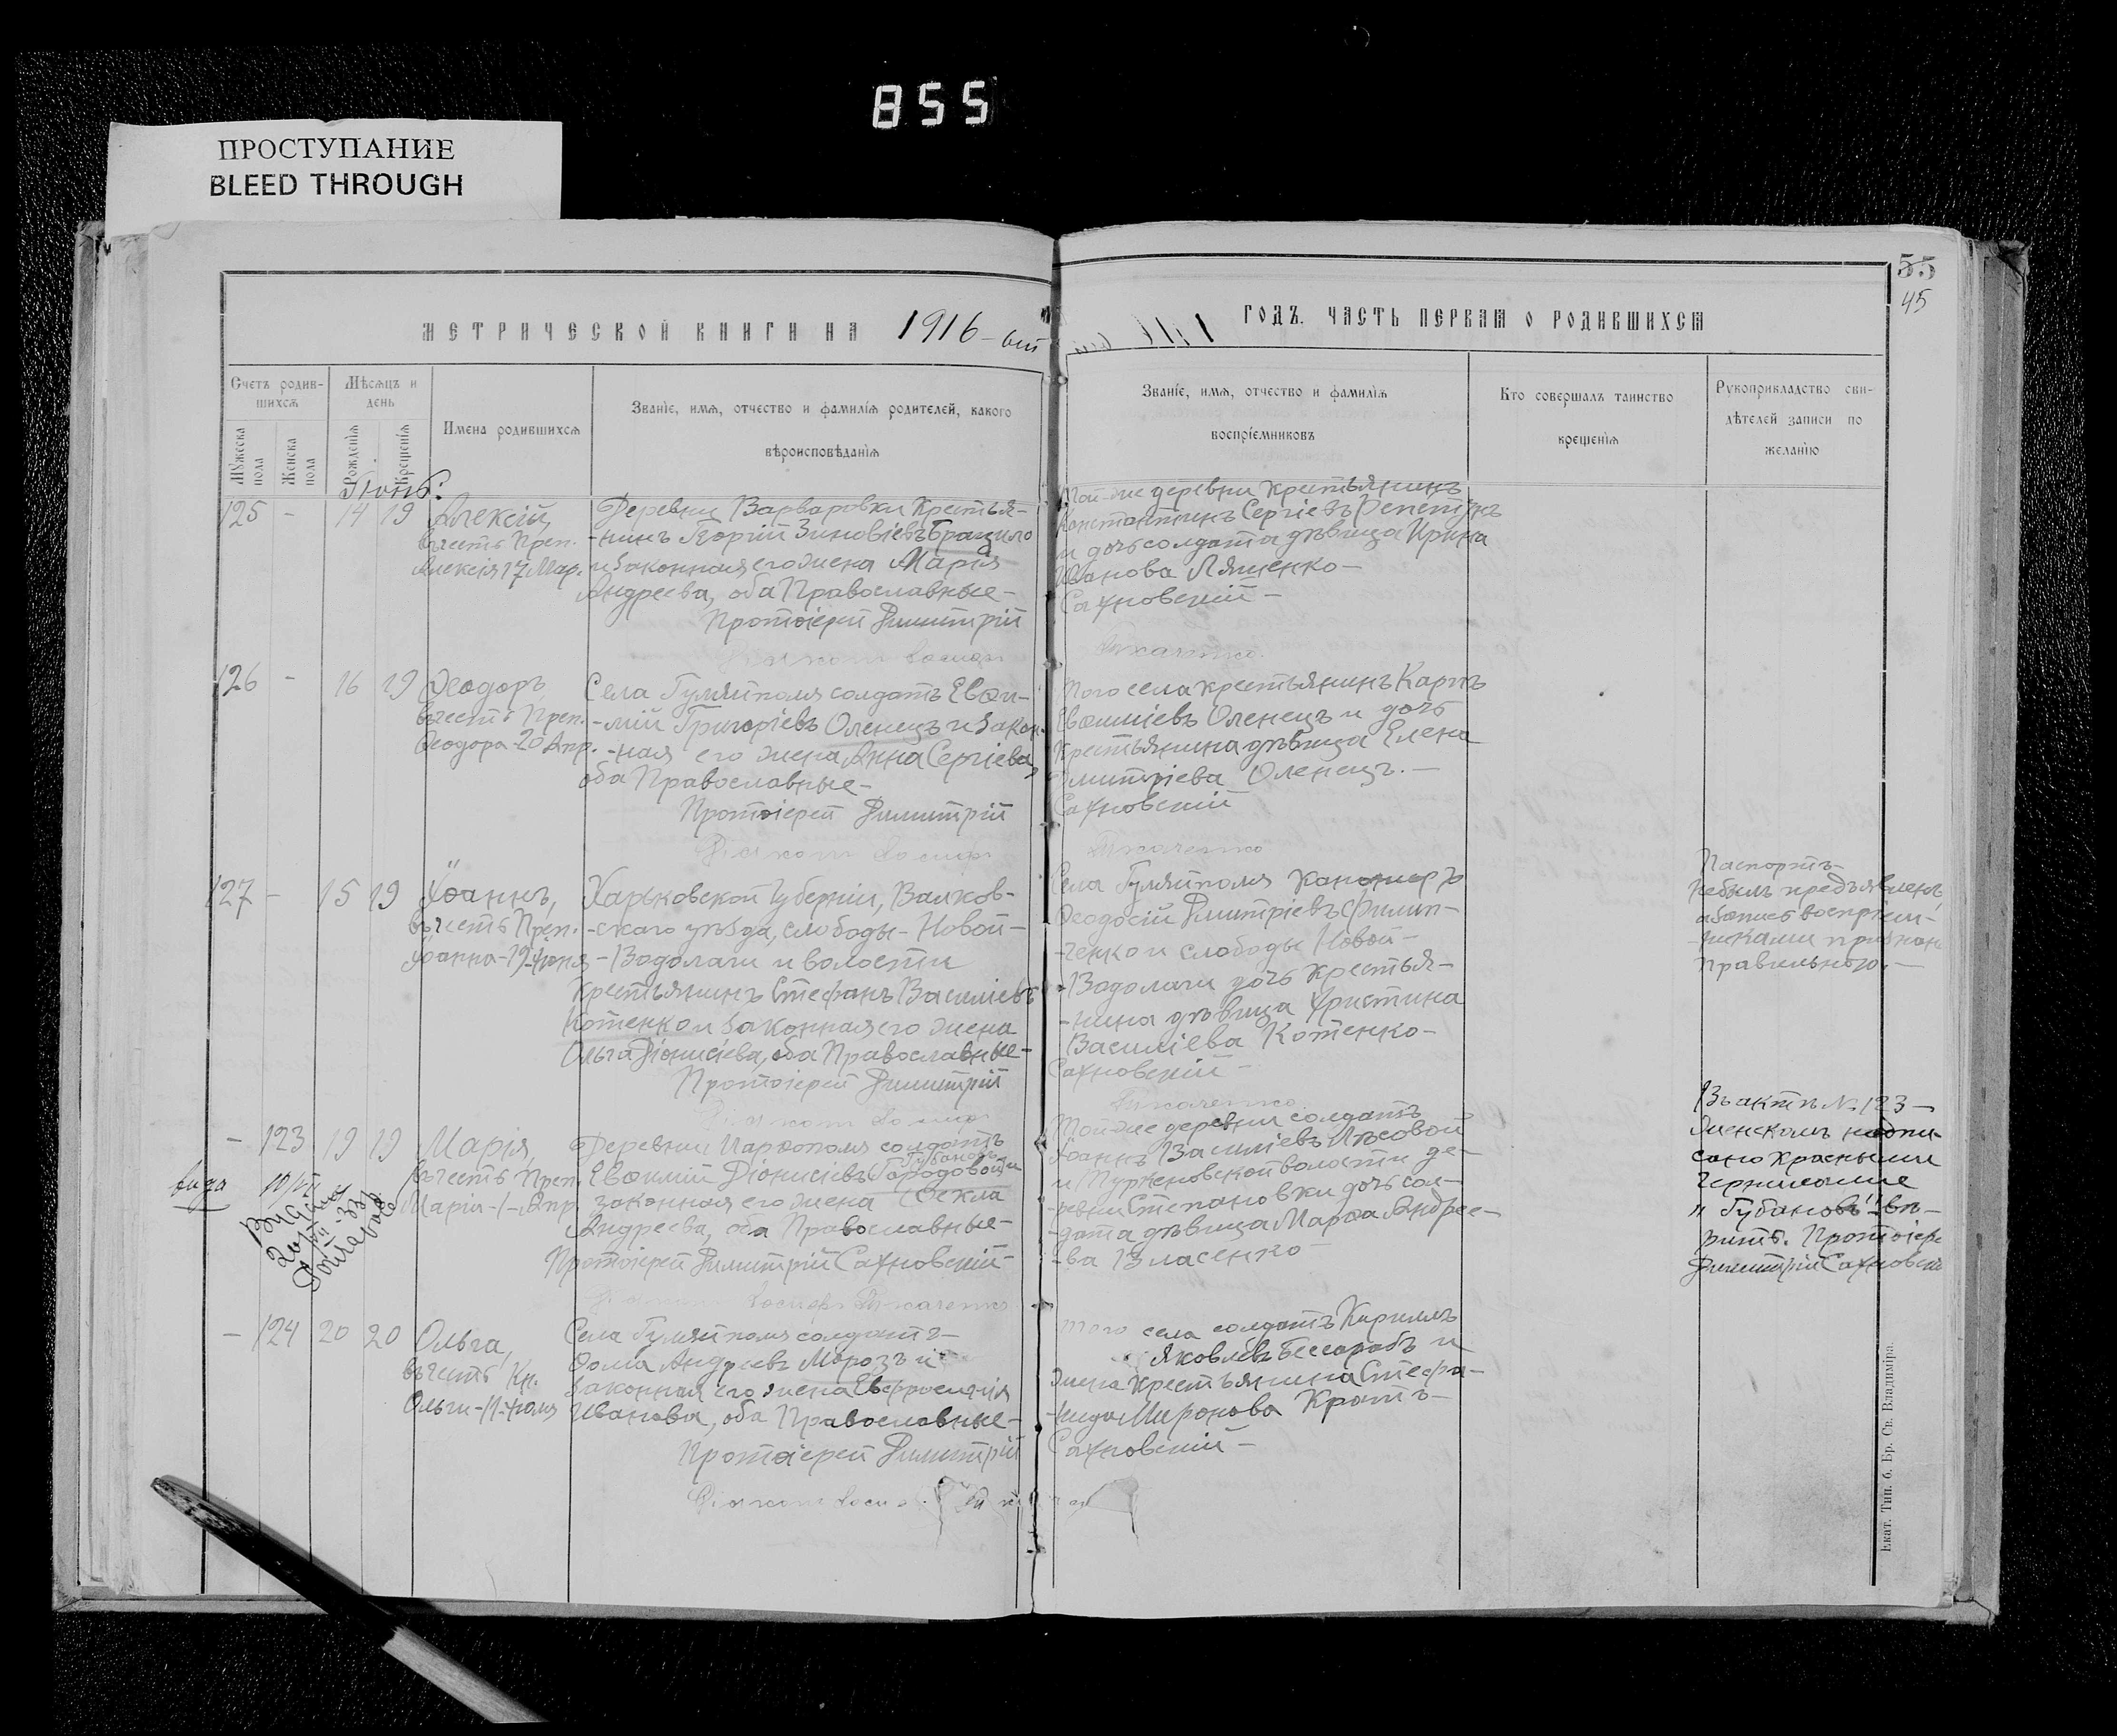 855
ПРОСТУПАНИЕ
BLEED THROUGH
55
45
МЕТРИЧЕСКОЙ КНИГИ НА 1916-ый
ГОДЪ. ЧАСТЬ ПЕРВАЯ О РОДИВШИХСЯ
Счетъ родив-
шихся
Мужеска
пола
Женска
пола
Мѣсяцъ и
день
Рожденія
Крещенія
Имена родившихся
Званіе, имя, отчество и фамилія родителей, какого
вѣроисповѣданія
Званіе, имя, отчество и фамилія
воспріемниковъ
Кто совершалъ таинство
крещенія
Рукоприкладство сви-
дѣтелей записи по
желанію
Іюнь:
125 - 14 19
Алексій,
въ честь Преп.
Алексія 17 Мар.
Деревни Варваровки Крестья-
-нинъ Георгій Зиновіевъ Брацило
и законная его жена Марія
Андреева, оба Православные-
Протоіерей Димитрій
Той-же деревни крестьянинъ
Константинъ Сергіевъ
и дочь солдата дѣвица Ирина
Иванова Ляшенко-
Сахновскій-
Ткаченко
126 - 16 19
Ѳеодоръ,
въ честь Преп.
Ѳеодора-20 Апр.
Села Гуляйполя солдатъ Евѳи-
-мій Григоріевъ Оленецъ и закон-
-ная его жена Анна Сергіева,
оба Православные-
Протоіерей Димитрій
Того села крестьянинъ Карпъ
Евѳиміевъ Оленецъ и дочь
крестьянина дѣвица Елена
Димитріева Оленецъ.-
Сахновскій
Ткаченко
127 - 15 19
Іоаннъ,
въ честь Преп.
Іоанна-19 Іюня
Харьковской Губерніи, Валков-
-скаго уѣзда, слободы-Новой-
-Водолаги и волости
крестьянинъ Стефанъ Василіевъ
Котенко и законная его жена
Ольга Діонисіева, оба Православные-
Протоіерей Димитрій
Села Гуляйполя
Ѳеодосій Димитріевъ Филип-
-ченко и слободы Новой-
-Водолаги дочь крестья-
-нина дѣвица Христина
Василіева Котенко-
Сахновскій-
Ткаченко
Паспортъ-
небылъ предъявленъ,
воспріем-
-никами признан
правильною.-
- 123 19 19
Марія,
въ честь Преп.
Маріи-1-Апр.
Деревни Марѳополя солдатъ
Губановъ
Евѳимій Діонисіевъ Городовой и
законная его жена Ѳекла
Андреева, оба Православные-
Протоіерей Димитрій Сахновскій-
Той-же деревни солдатъ
Іоаннъ Василіевъ Лѣсовой
и Туркеновской волости де-
-ревни Степановки дочь сол-
-дата дѣвица Марѳа Андрее-
-ва Власенко-
Въ актѣ № 123-
женскомъ надпи-
сано красными
чернилами
"Губановъ" вѣ-
рить. Протоіере
Димитрій Сахновскі
- 124 20 20
Ольга,
въ честь Кн.
Ольги-11-Іюля
Села Гуляйполя солдатъ-
Ѳома Андреевъ Морозъ и
законная его жена Евфросинія
Иванова, оба Православные-
Протоіерей Димитрій
Того села солдатъ Кириллъ
Яковлевъ Бессарабъ и
жена крестьянина Стефа-
-нида Миронова Кротъ-
Сахновскій-
Екат. Тип. б. Бр. Св. Владиміра.